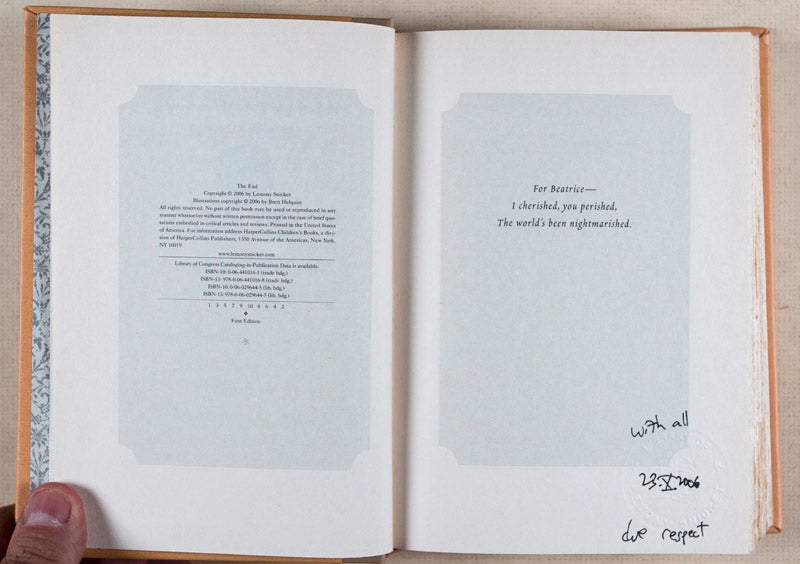 The End
Copyright © 2006 by Lemony Snicket
Illustrations copyright © 2006 by Brett Helquist
All rights reserved. No part of this book may be used or reproduced in any
manner whatsoever without written permission except in the case of brief quo-
tations embodied in critical articles and reviews. Printed in the United States
of America. For information address HarperCollins Children's Books, a divi-
sion of HarperCollins Publishers, 1350 Avenue of the Americas, New York,
NY 10019.
www.lemonysnicket.com
Library of Congress Cataloging-in-Publication Data is available.
ISBN-10: 0-06-441016-1 (trade bdg.)
ISBN-13: 978-0-06-441016-8 (trade bdg.)
ISBN-10: 0-06-029644-5 (lib. bdg.)
ISBN-13: 978-0-06-029644-5 (lib. bdg.)
1 3 5 7 9 10 8 6 4 2
First Edition
For Beatrice—
I cherished, you perished,
The world's been nightmarished.
with all
23.X.2006
due respect